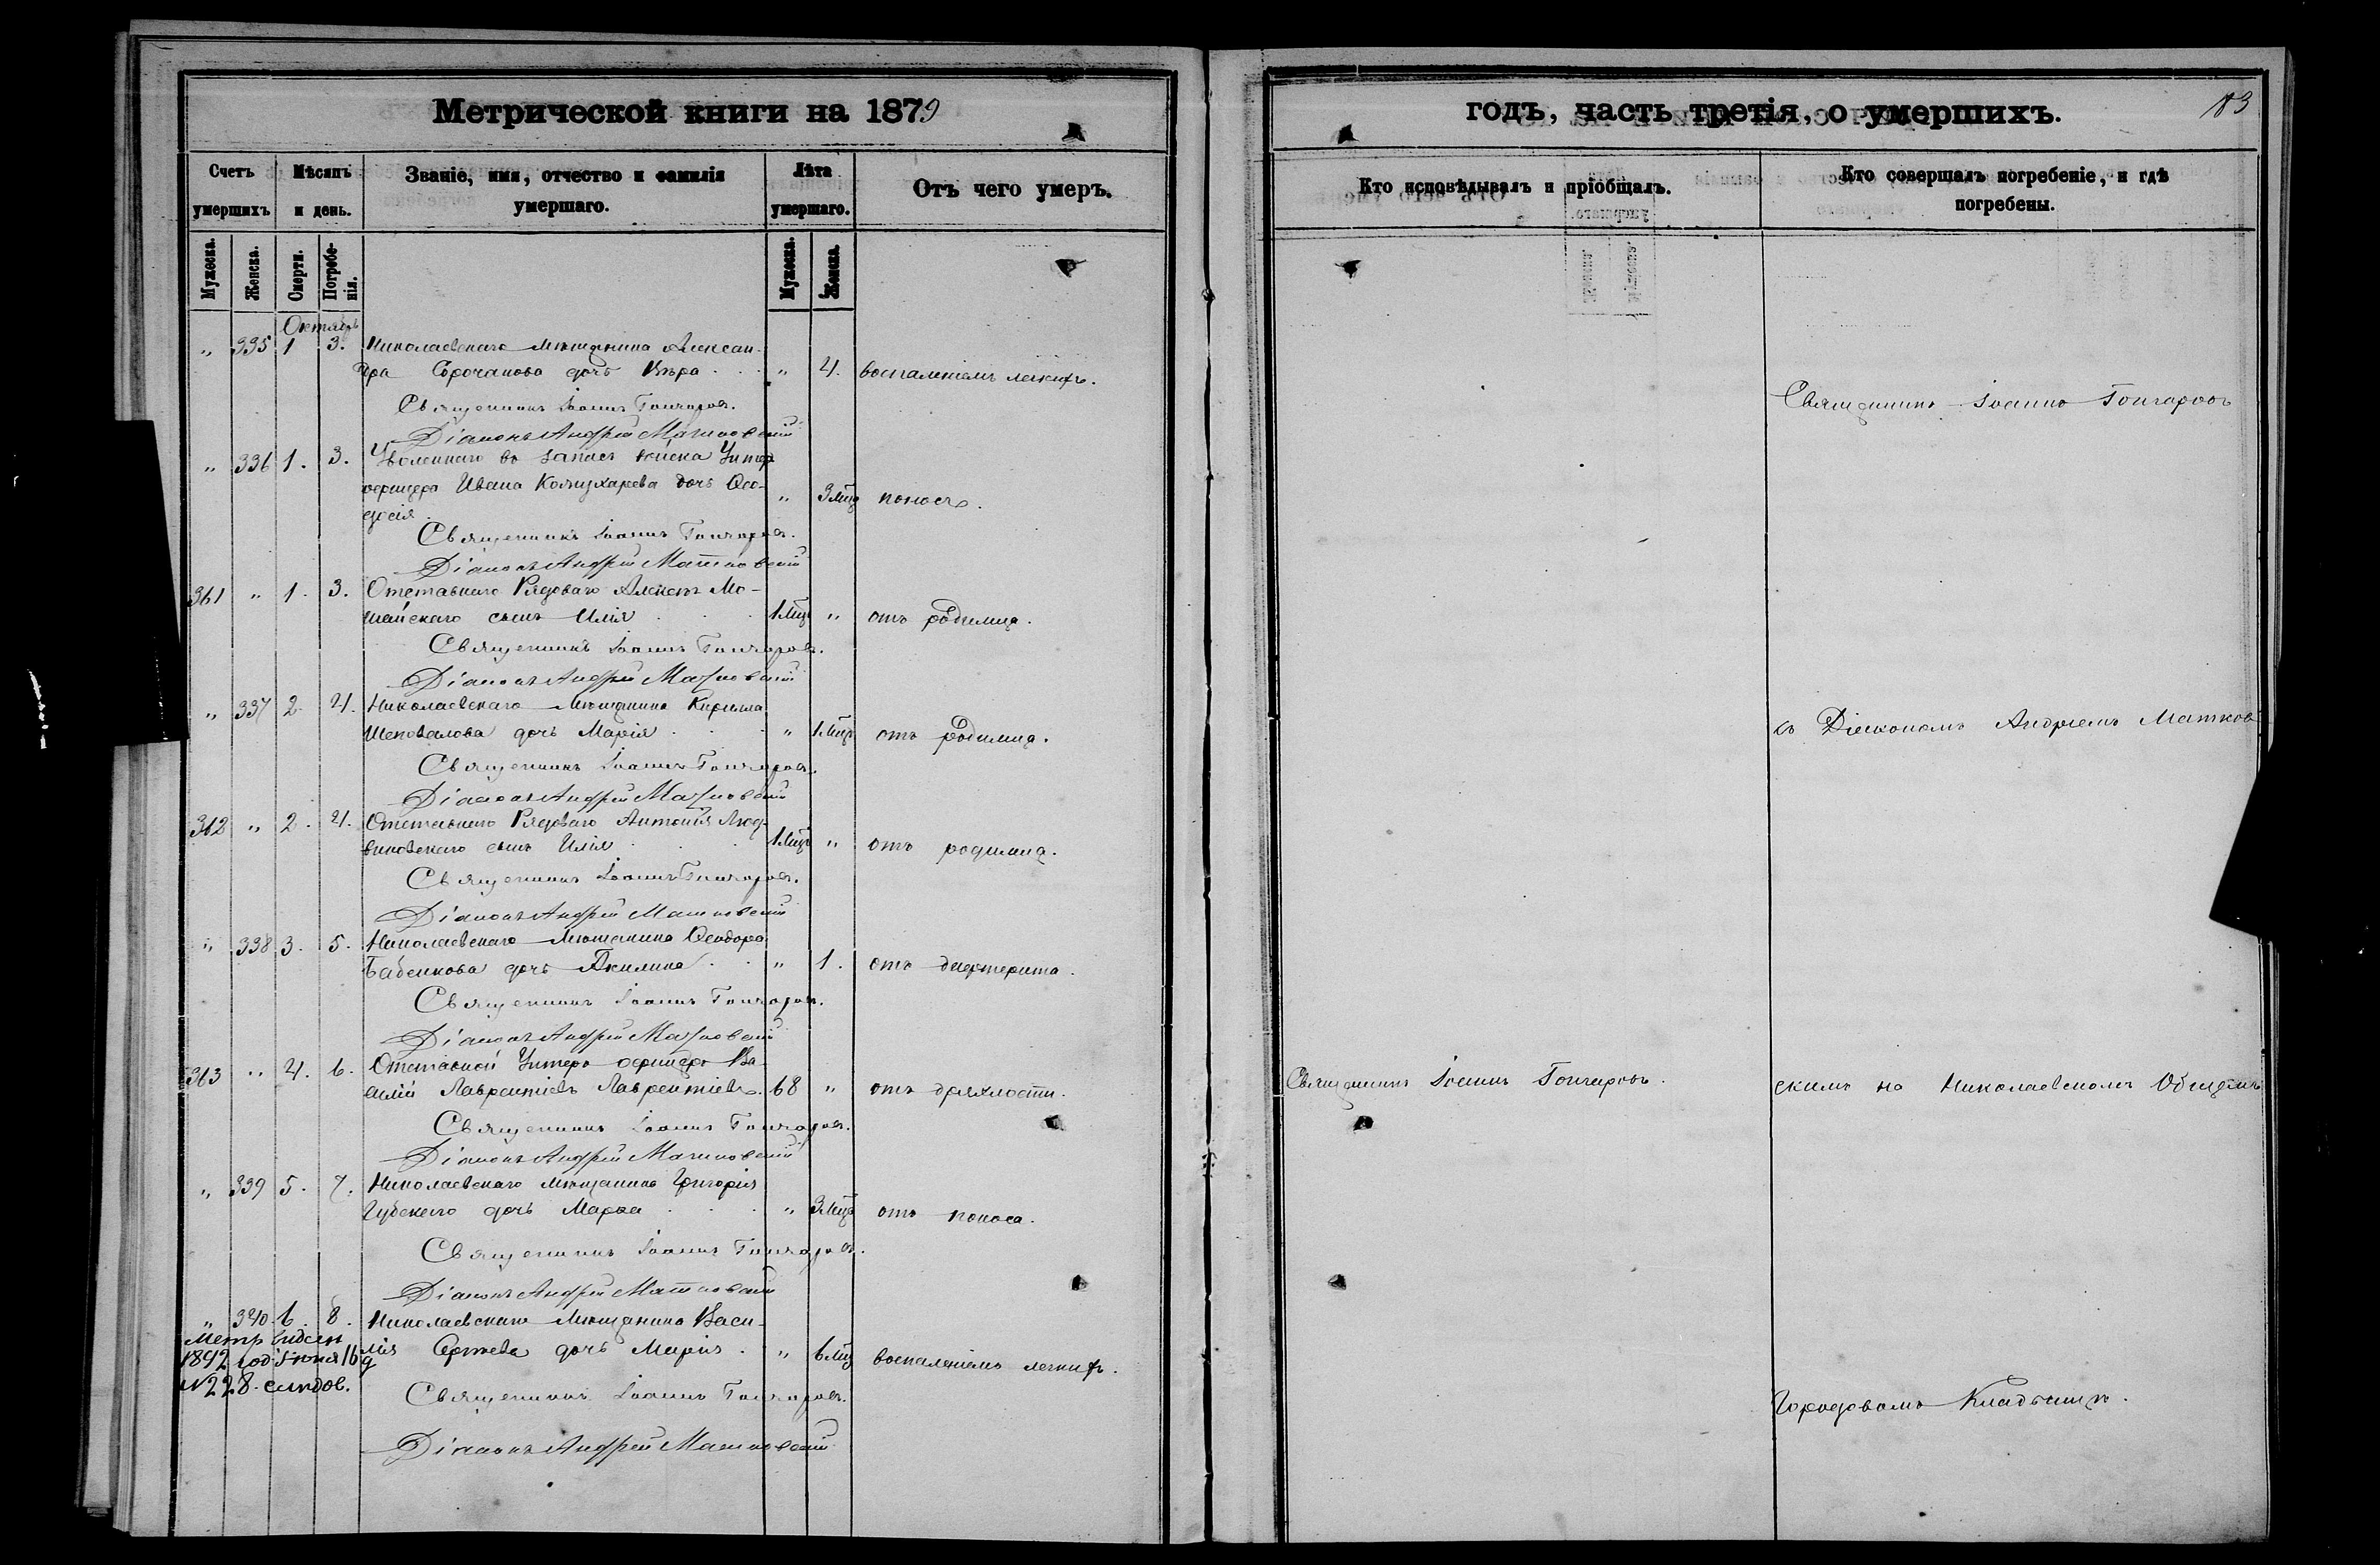 Метрической книги на 1879
Счетъ умершихъ
Мѣсяцъ и день.
Званіе, имя, отчество и фамилія умершаго.
Лѣта умершаго.
Отъ чего умеръ.
Мужеска. Женска. Смерти. Погребенія. Мужеска. Женска.
Октябрь
" 335 1 3. Николаевскаго мѣщанина Алексан-
дра дочь Вѣра " 4. воспаленіемъ легкихъ.
Священникъ Іоаннъ Гончаровъ.
Діаконъ Андрей Матковскій
" 336 1. 3. Уволеннаго въ запасъ войска Унтер
офицера Ивана дочь Ѳео-
досія " 3 мѣц поносъ.
Священникъ Іоаннъ Гончаровъ.
Діаконъ Андрей Матковскій
361 " 1. 3. Отставнаго Рядоваго Алексѣя Мо-
шайскаго сынъ Илія 1 мѣц " отъ родимца.
Священникъ Іоаннъ Гончаровъ.
Діаконъ Андрей Матковскій
" 337 2. 4. Николаевскаго мѣщанина Кирилла
Шаповалова дочь Марія " 1 мѣц отъ родимца.
Священникъ Іоаннъ Гончаровъ.
Діаконъ Андрей Матковскій
362 " 2. 4. Отставнаго Рядоваго Антонія
сынъ Илія 1 мѣц " отъ родимца.
Священникъ Іоаннъ Гончаровъ.
Діаконъ Андрей Матковскій
" 338 3. 5. Николаевскаго мѣщанина Ѳеодора
Бабенкова дочь Акилина " 1. отъ дифтерита.
Священникъ Іоаннъ Гончаровъ.
Діаконъ Андрей Матковскій
363 " 4. 6. Отставной Унтеръ офицеръ Ва-
силій Лаврентіевъ Лаврентіевъ. 68 " отъ дряхлости.
Священникъ Іоаннъ Гончаровъ.
Діаконъ Андрей Матковскій
" 339 5. 7. Николаевскаго мѣщанина Григорія
Губскаго дочь Марѳа " 3 мѣц отъ поноса.
Священникъ Іоаннъ Гончаровъ.
Діаконъ Андрей Матковскій
" 340 6. 8. Николаевскаго мѣщанина Васи-
лія дочь Марія " 6 мѣц воспаленіемъ легкихъ.
Метр
1892 год іюня 16
N 228.
Священникъ Іоаннъ Гончаровъ.
Діаконъ Андрей Матковскій
годъ, часть третія, о умершихъ. 183
Кто исповѣдывалъ и пріобщалъ.
Кто совершалъ погребеніе, и гдѣ погребены.
Священникъ Іоаннъ Гончаровъ
съ Діакономъ Андреемъ Матков
Священникъ Іоаннъ Гончаровъ.
скимъ на Николаевскомъ Общемъ
Городовомъ Кладбищѣ.